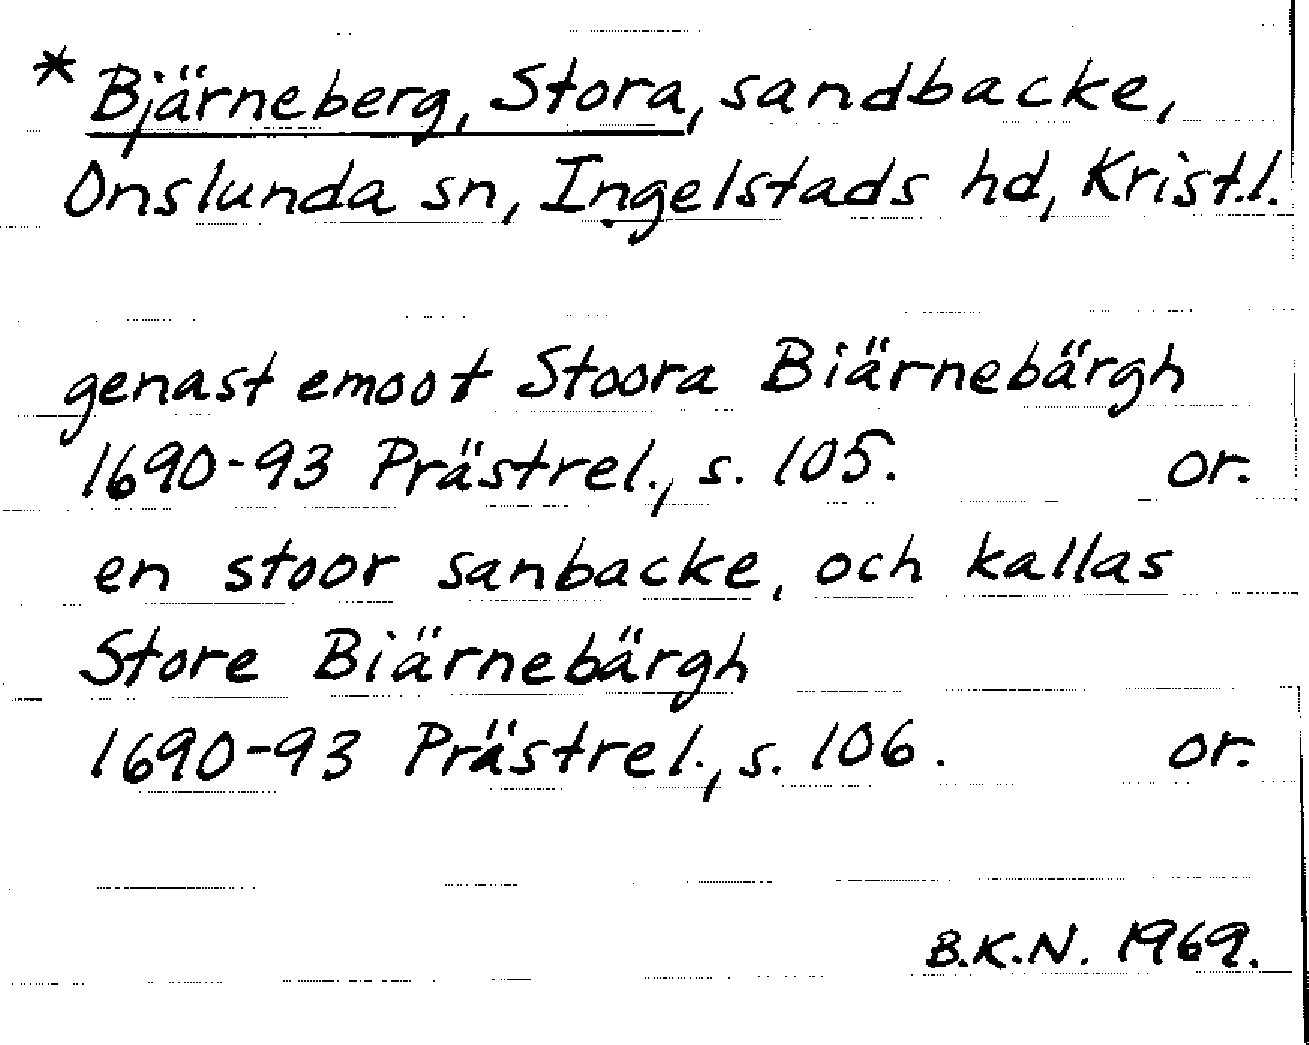 * Bjärneberg, Stora, sandbacke,
Onslunda sn, Ingelstads hd, Krist.l.
genast emoot Stoora Biärnebärgh
1690-93 Prästrel., s. 105. or.
en stoor sanbacke, och kallas
Store Biärnebärgh
1690-93 Prästrel., s. 106. or.
B.K.N. 1969.